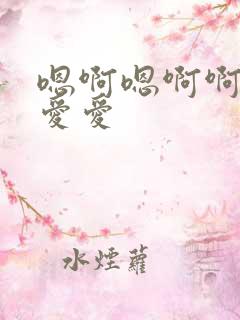 嗯啊嗯啊啊
愛愛
水煙蘿